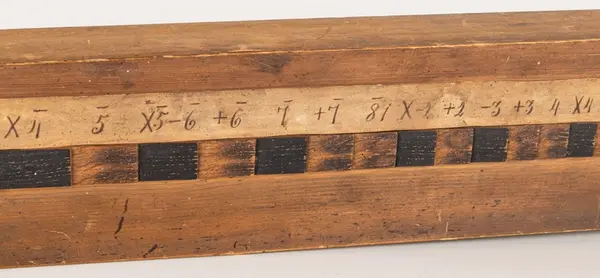 X4̅ 5̅ X5̅ -6̅ +6̅ 7̅ +7̅ 8̅1 X-2 +2 -3 +3 4 X4